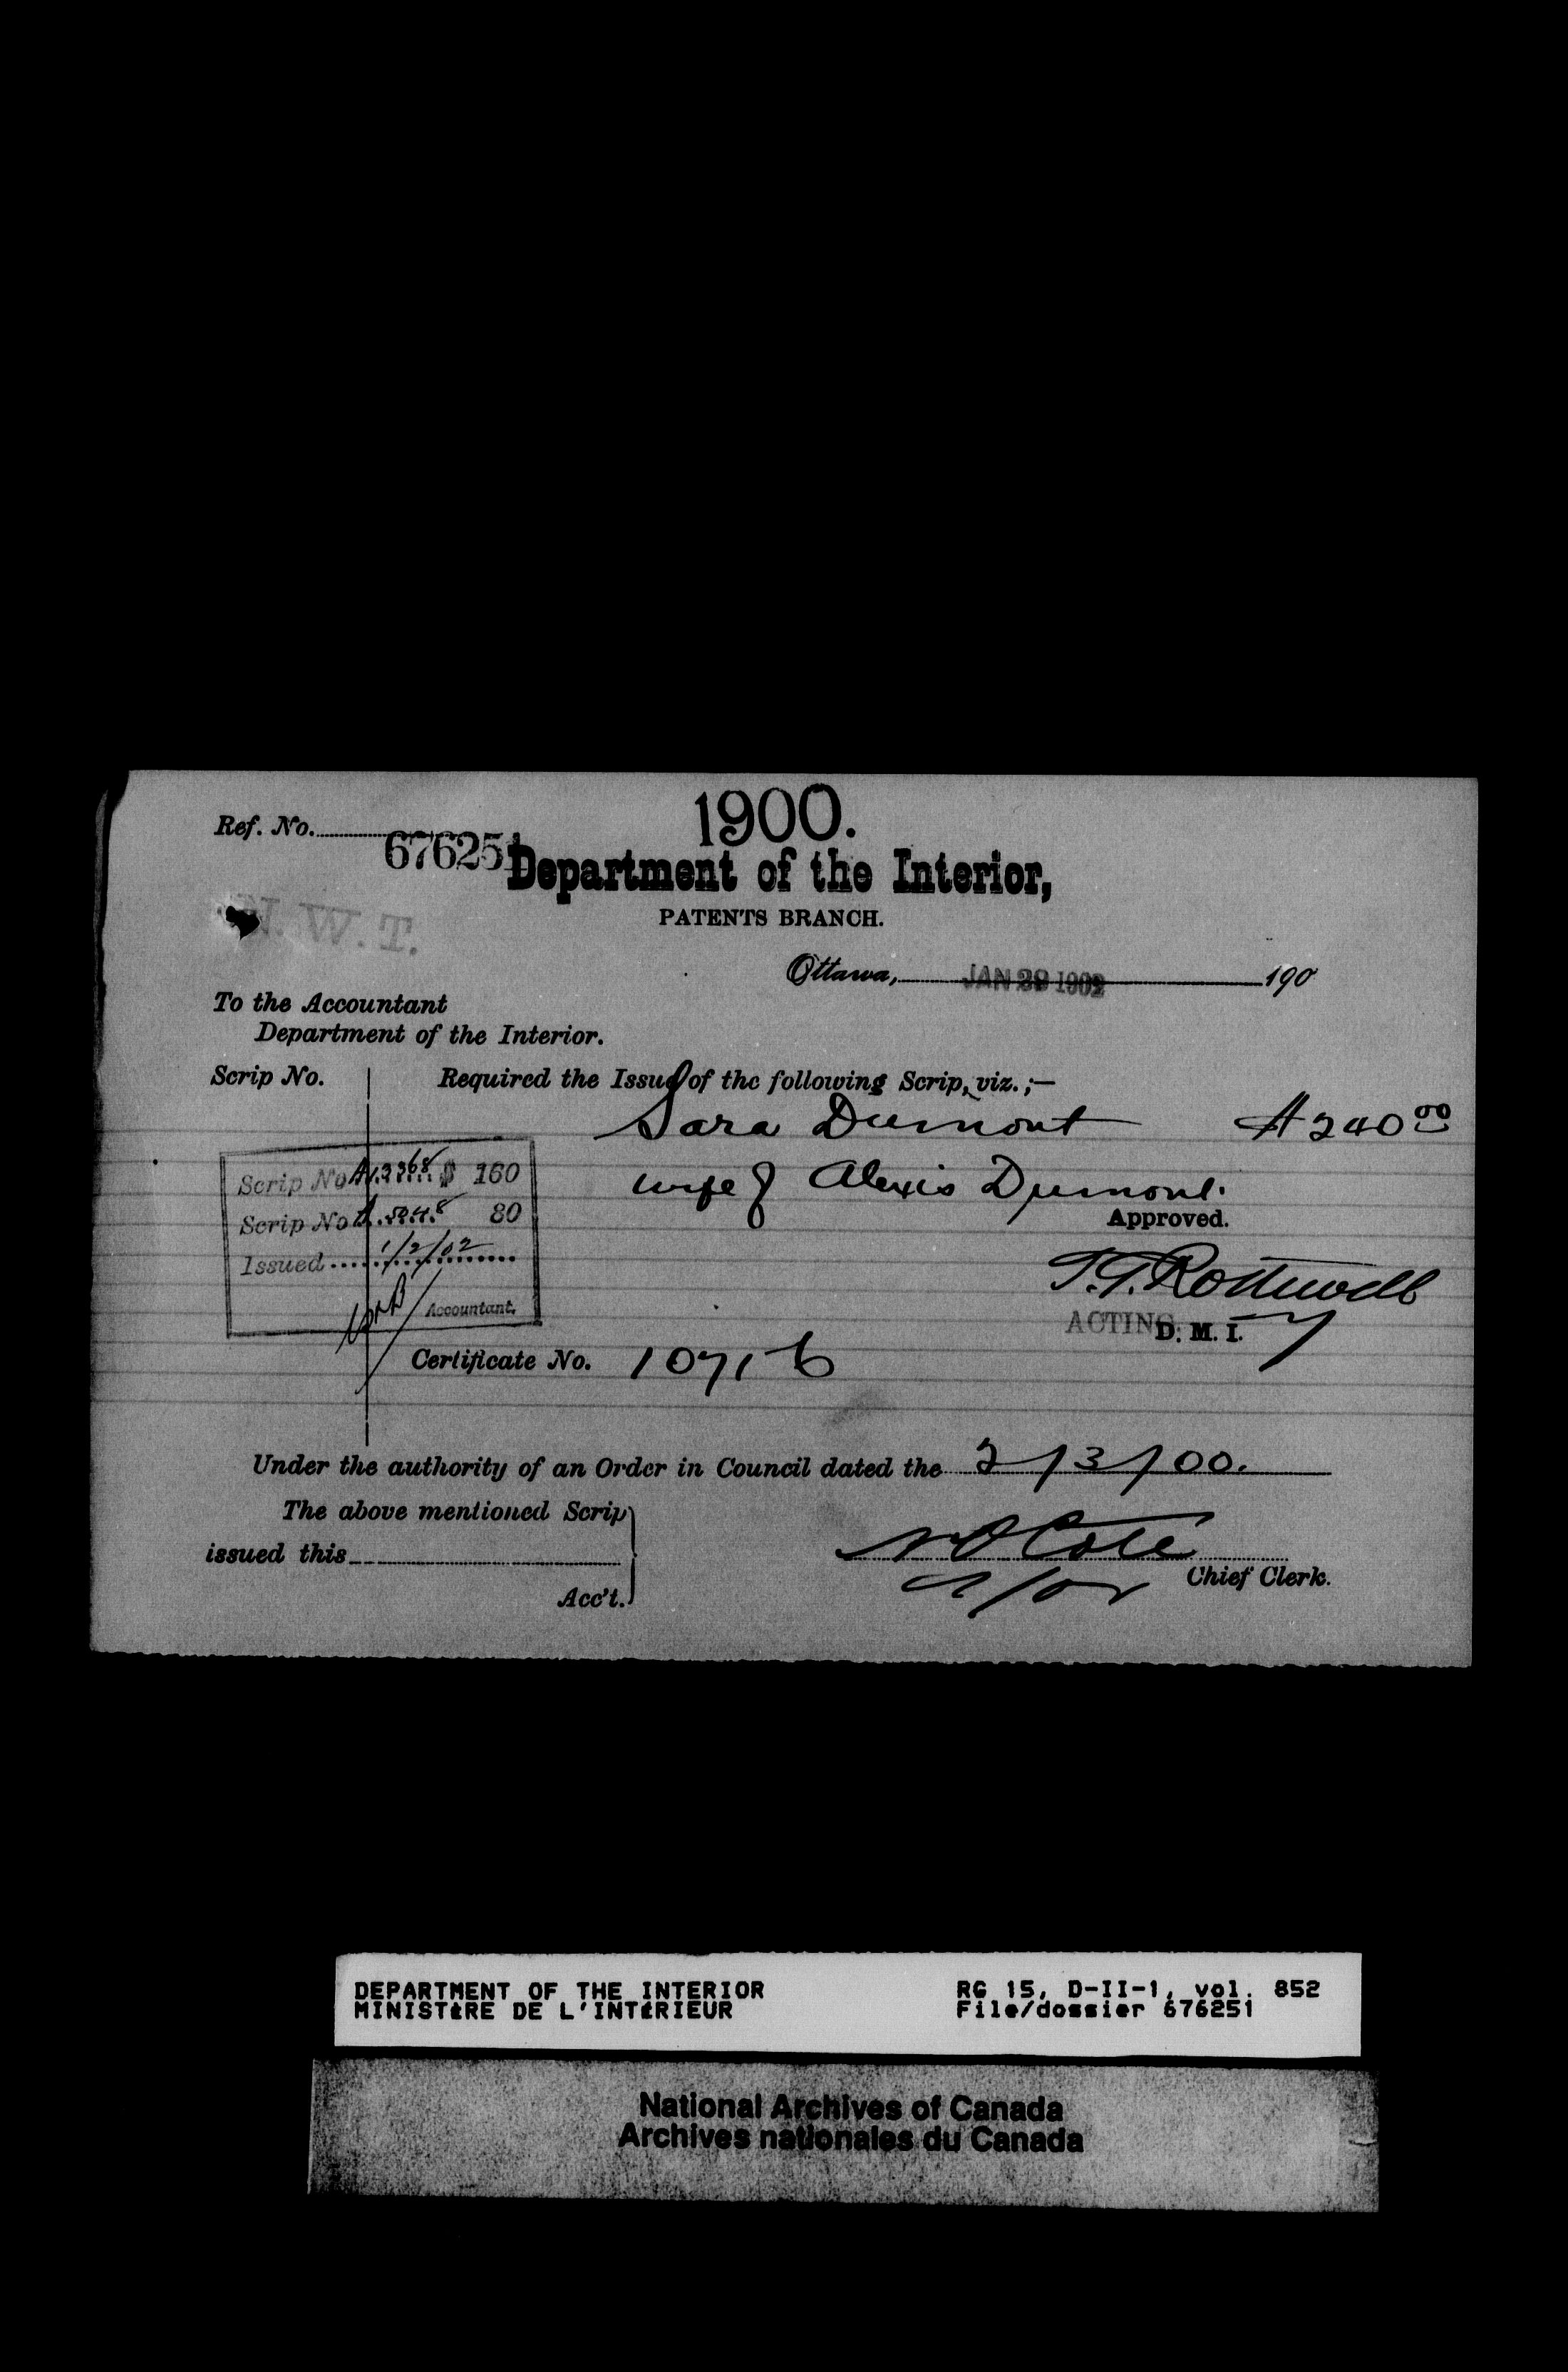 1900.
Ref. No. 676251
Department of the Interior,
PATENTS BRANCH.
N. W. T.
Ottawa, JAN 29 1902 190
To the Accountant
Department of the Interior.
Scrip No. Required the Issue of the following Scrip, viz.;—
Sara Dumont $240.00
wife of Alexis Dumont.
Scrip No. $ 160
Scrip No. 80
Issued 1/2/02
Accountant.
Approved.
T.G. Rothwell
ACTING D. M. I.
Certificate No. 1071 b
Under the authority of an Order in Council dated the 2/3/00.
The above mentioned Scrip
issued this
Acc't.
N O Cote
Chief Clerk.
DEPARTMENT OF THE INTERIOR RG 15, D-II-1, vol. 852
MINISTÈRE DE L'INTÉRIEUR File/dossier 676251
National Archives of Canada
Archives nationales du Canada